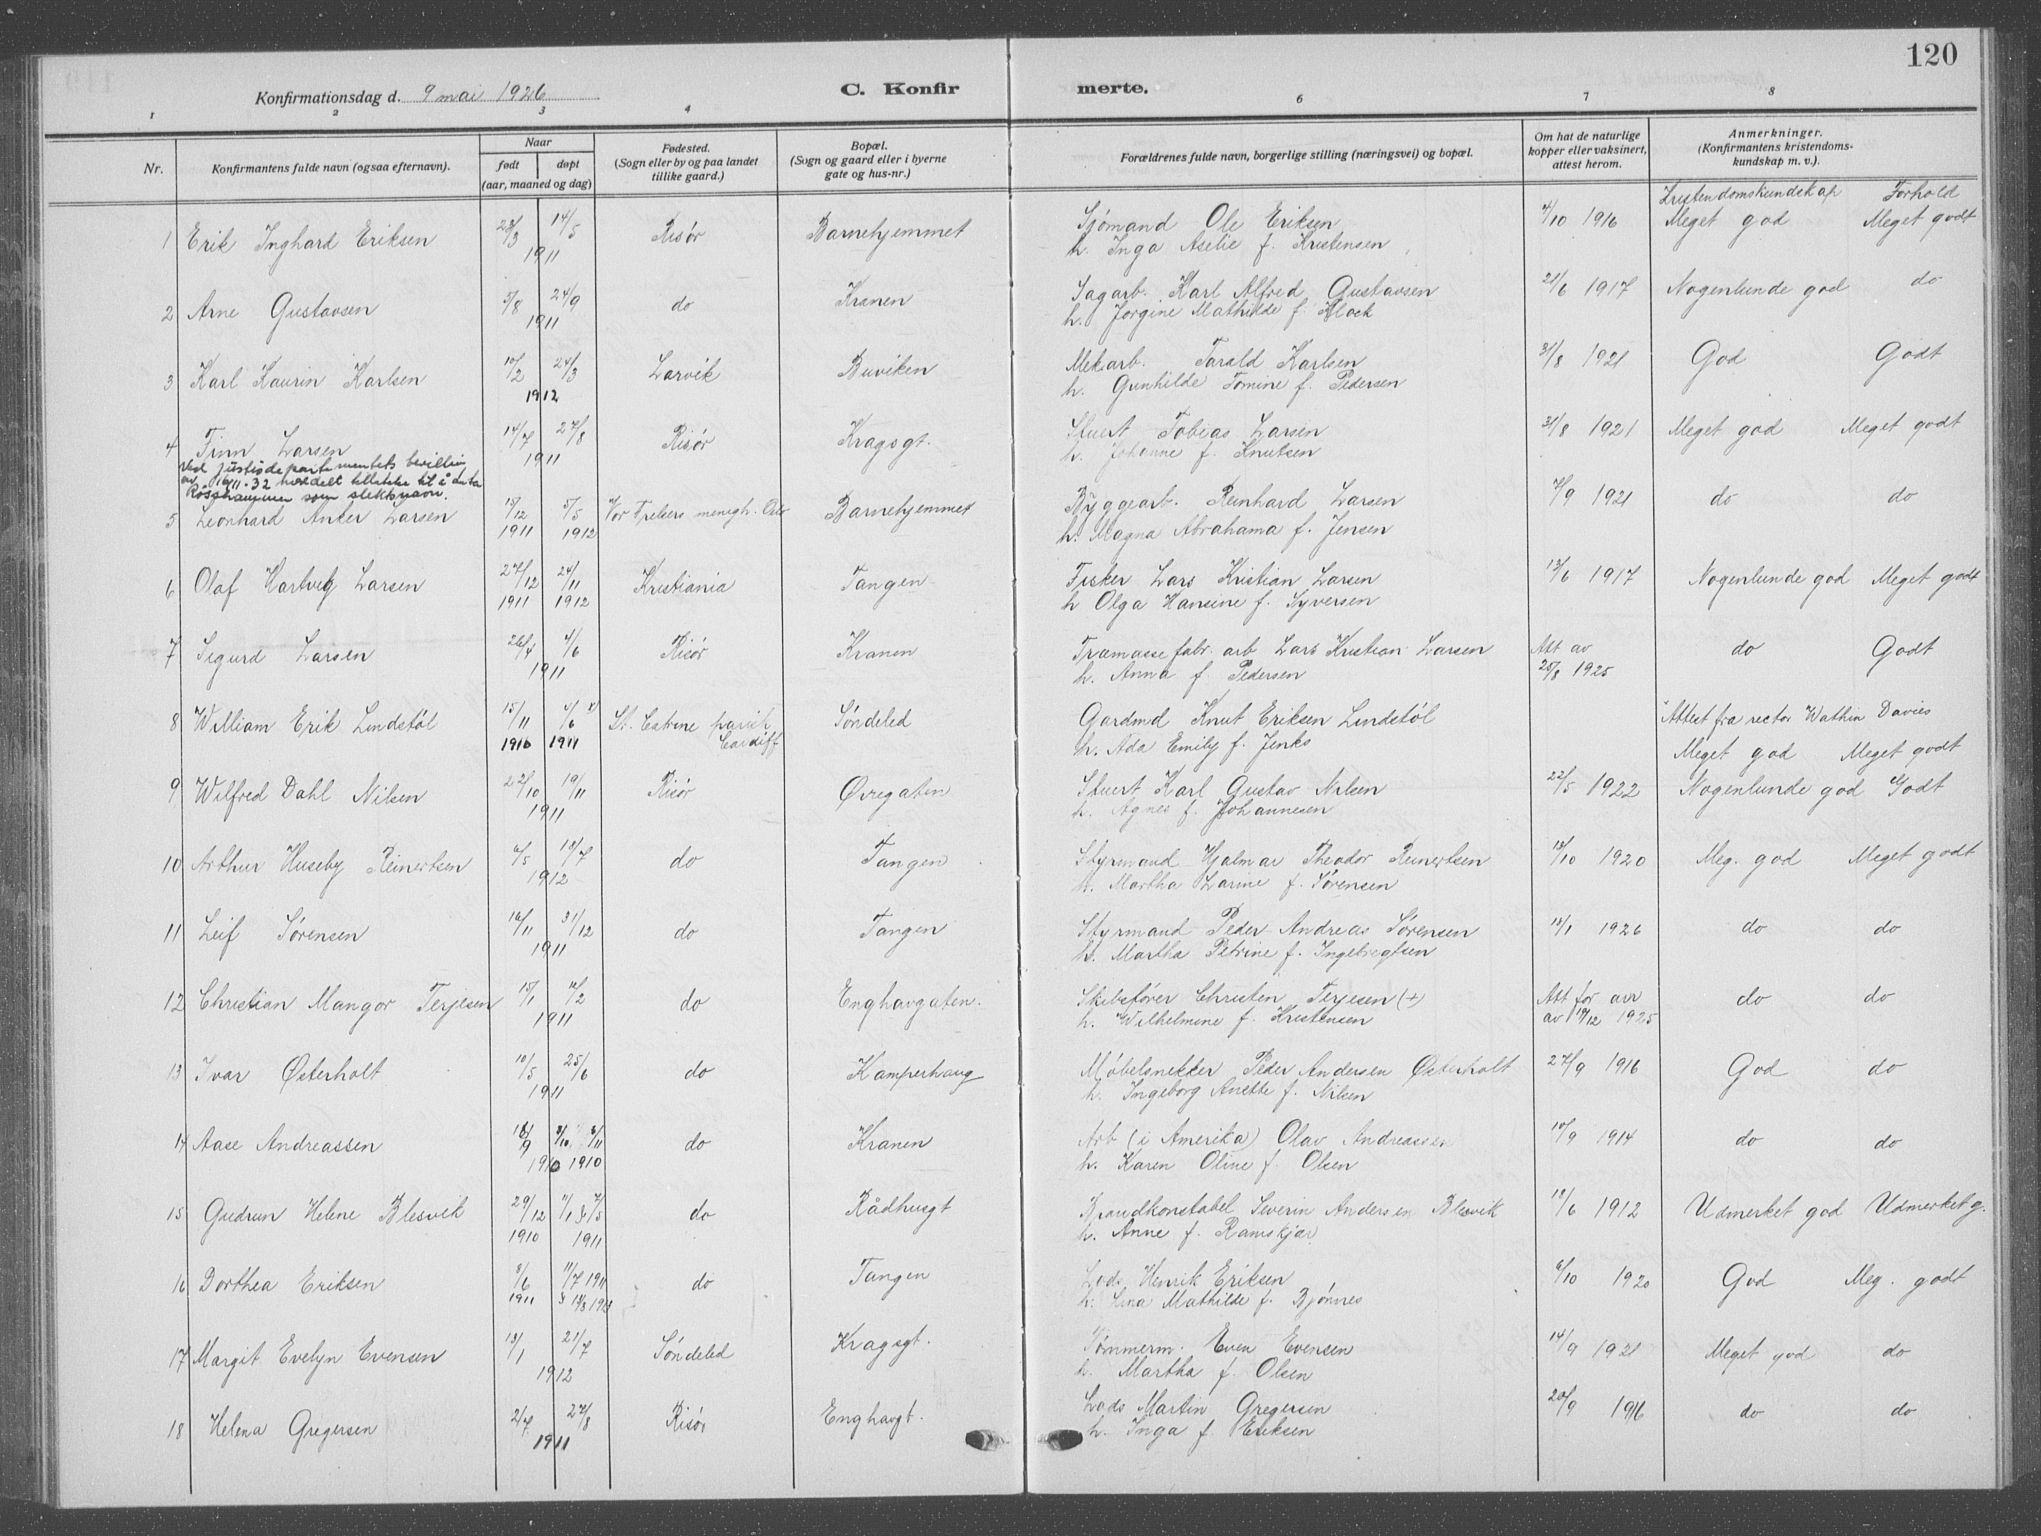 120
Konfirmationsdag d. 9 mai 1926 C. Konfirmerte.
1 2 3 4 6 7 8
Nr.
Konfirmantens fulde navn (ogsaa efternavn).
Naar
født døpt
(aar, maaned og dag)
Fødested.
(Sogn eller by og paa landet
tillike gaard.)
Bopæl.
(Sogn og gaard eller i byerne
gate og hus-nr.)
Forældrenes fulde navn, borgerlige stilling (næringsvei) og bopæl.
Om hat de naturlige
kopper eller vaksinert,
attest herom.
Anmerkninger.
(Konfirmantens kristendoms-
kundskap m. v.).
Kristendomskundskap Forhold
1 Erik Inghard Eriksen 28/3 14/5 Risør Barnehjemmet Sjømand Ole Eriksen 4/10 1916 Meget god Meget godt
1911 h. Inga Aselie f. Kristensen
2 Arne Gustavsen 5/8 24/9 do Kranen Sagarb. Karl Alfred Gustavsen 21/6 1917 Nogenlunde god do
1911 h. Jørgine Mathilde f. Klock
3 Karl Kaurin Karlsen 10/2 24/3 Larvik Buviken Mekarb. Tarald Karlsen 31/8 1921 God Godt
1912 h. Gunhilde Tomine f. Pedersen
4 Finn Larsen 14/7 27/8 Risør Kragsgt. Stuert Tobias Larsen 31/8 1921 Meget god Meget godt
1911 h. Johanne f. Knutsen
Ved justisdepartementets bevilling
av 16/11-32 meddelt tillatelse til å anta
Rösshammer som slektsnavn.
5 Leonhard Anker Larsen 15/12 5/5 Vor Frelsers menigh. Oslo Barnehjemmet Byggearb. Reinhard Larsen 7/9 1921 do do
1911 1912 h. Magna Abrahama f. Jensen
6 Olaf Hartvig Larsen 27/12 24/11 Kristiania Tangen Fisker Lars Kristian Larsen 13/6 1917 Nogenlunde god Meget godt
1911 1912 h Olga Hansine f. Syversen
7 Sigurd Larsen 26/4 4/6 Risør Kranen Tramasse fabr. arb Lars Kristian Larsen Att av do Godt
1911 h. Anna f Pedersen 25/8 1925
8 William Erik Lindstøl 15/11 4/6 x) St. Catrine parish Søndeled Gardmd Knut Eriksen Lindstøl x Attest fra rector Wathin Davies
1910 1911 Cardiff h. Ada Emily f. Jenks Meget god Meget godt
9 Wilfred Dahl Nilsen 22/10 19/11 Risør Øvregaten Stuert Karl Gustav Nilsen 22/5 1922 Nogenlunde god Godt
1911 h. Agnes f. Johannesen
10 Arthur Huseby Reinertsen 6/5 13/7 do Tangen Styrmand Hjalmar Theodor Reinertsen 13/10 1920 Meg. god Meget godt
1912 h. Martha Larine f. Sørensen
11 Leif Sørensen 16/11 31/12 do Tangen Styrmand Peder Andreas Sørensen 13/1 1926 do do
1911 h. Martha Petrine f. Ingebregtsen
12 Christian Mangor Terjesen 15/1 14/2 do Enghavgaten. Skibsfører Christen Terjesen (+) Att for avv do do
1911 h. Wilhelmine f. Kristensen av 19/12 1925
13 Ivar Østerholt 10/5 25/6 do Kamperhaug Møbelsnekker Peder Andersen Østerholt 27/9 1916 God do
1911 h. Ingeborg Anette f. Nilsen
14 Aase Andreassen 18/9 3/10 6/11 do Kranen Arb (i Amerika) Olav Andreassen 10/9 1914 do do
1910 1910 h. Karen Oline f. Olsen
15 Gudrun Helene Blesvik 29/12 1/1 & 7/5 do Rådhusgt Brandkonstabel Severin Andersen Blesvik 18/6 1912 Udmerket god Udmerket g.
1910 1911 h. Anne f. Ramskjær
16 Dorthea Eriksen 8/6 11/7 1911 do Tangen Lods Henrik Eriksen 6/10 1920 God Meg. godt
1911 h. Lina Mathilde f. Bjønnes
17 Margit Evelyn Evensen 13/1 21/7 Søndeled Kragsgt. Tømmerm. Even Evensen 14/9 1921 Meget god do
1912 h. Martha f. Olsen
18 Helena Gregersen 2/7 27/8 Risør Enghavgt. Lods Martin Gregersen 20/9 1916 do do
1911 h. Inga f Eriksen